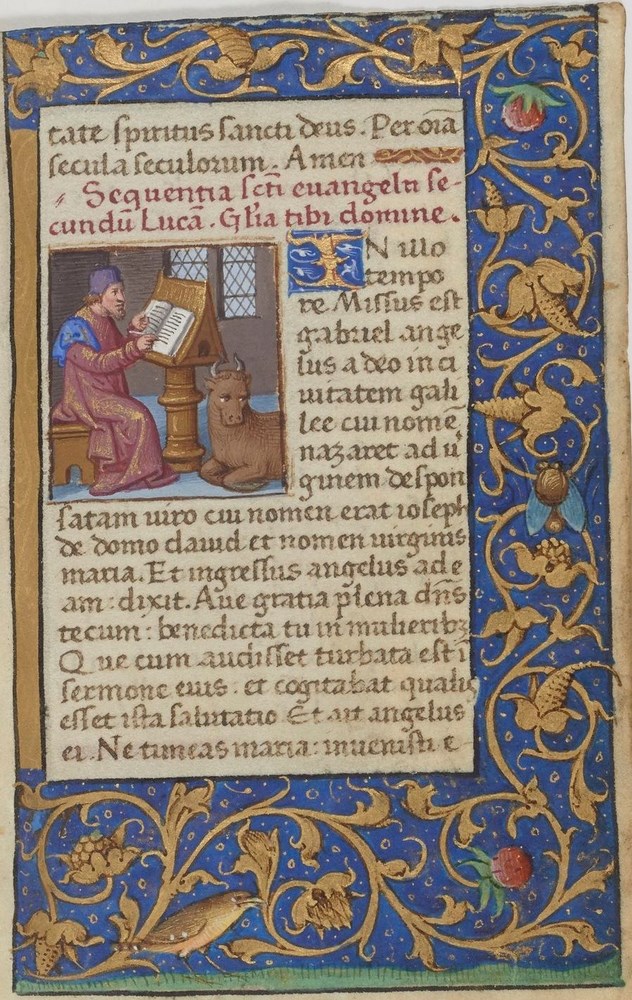 tate spiritus sancti deus. Per oīa
secula seculorum. Amen
Sequentia sc̄ti euangelii se-
cundū Lucā. Gl̄ia tibi domine.
IN illo
tempo
re. Missus est
gabriel ange
lus a deo in ci
uitatem gali
lee cui nomē
nazaret ad ū
ginem despon
satam uiro cui nomen erat ioseph
de domo dauid et nomen uirginis
maria. Et ingressus angelus ad e
am : dixit. Aue gratia plena dn̄s
tecum : benedicta tu in mulieribꝫ
Que cum audisset turbata est ī
sermone eius. et cogitabat qualis
esset ista salutatio. Et ait angelus
ei. Ne timeas maria : inuenisti e-